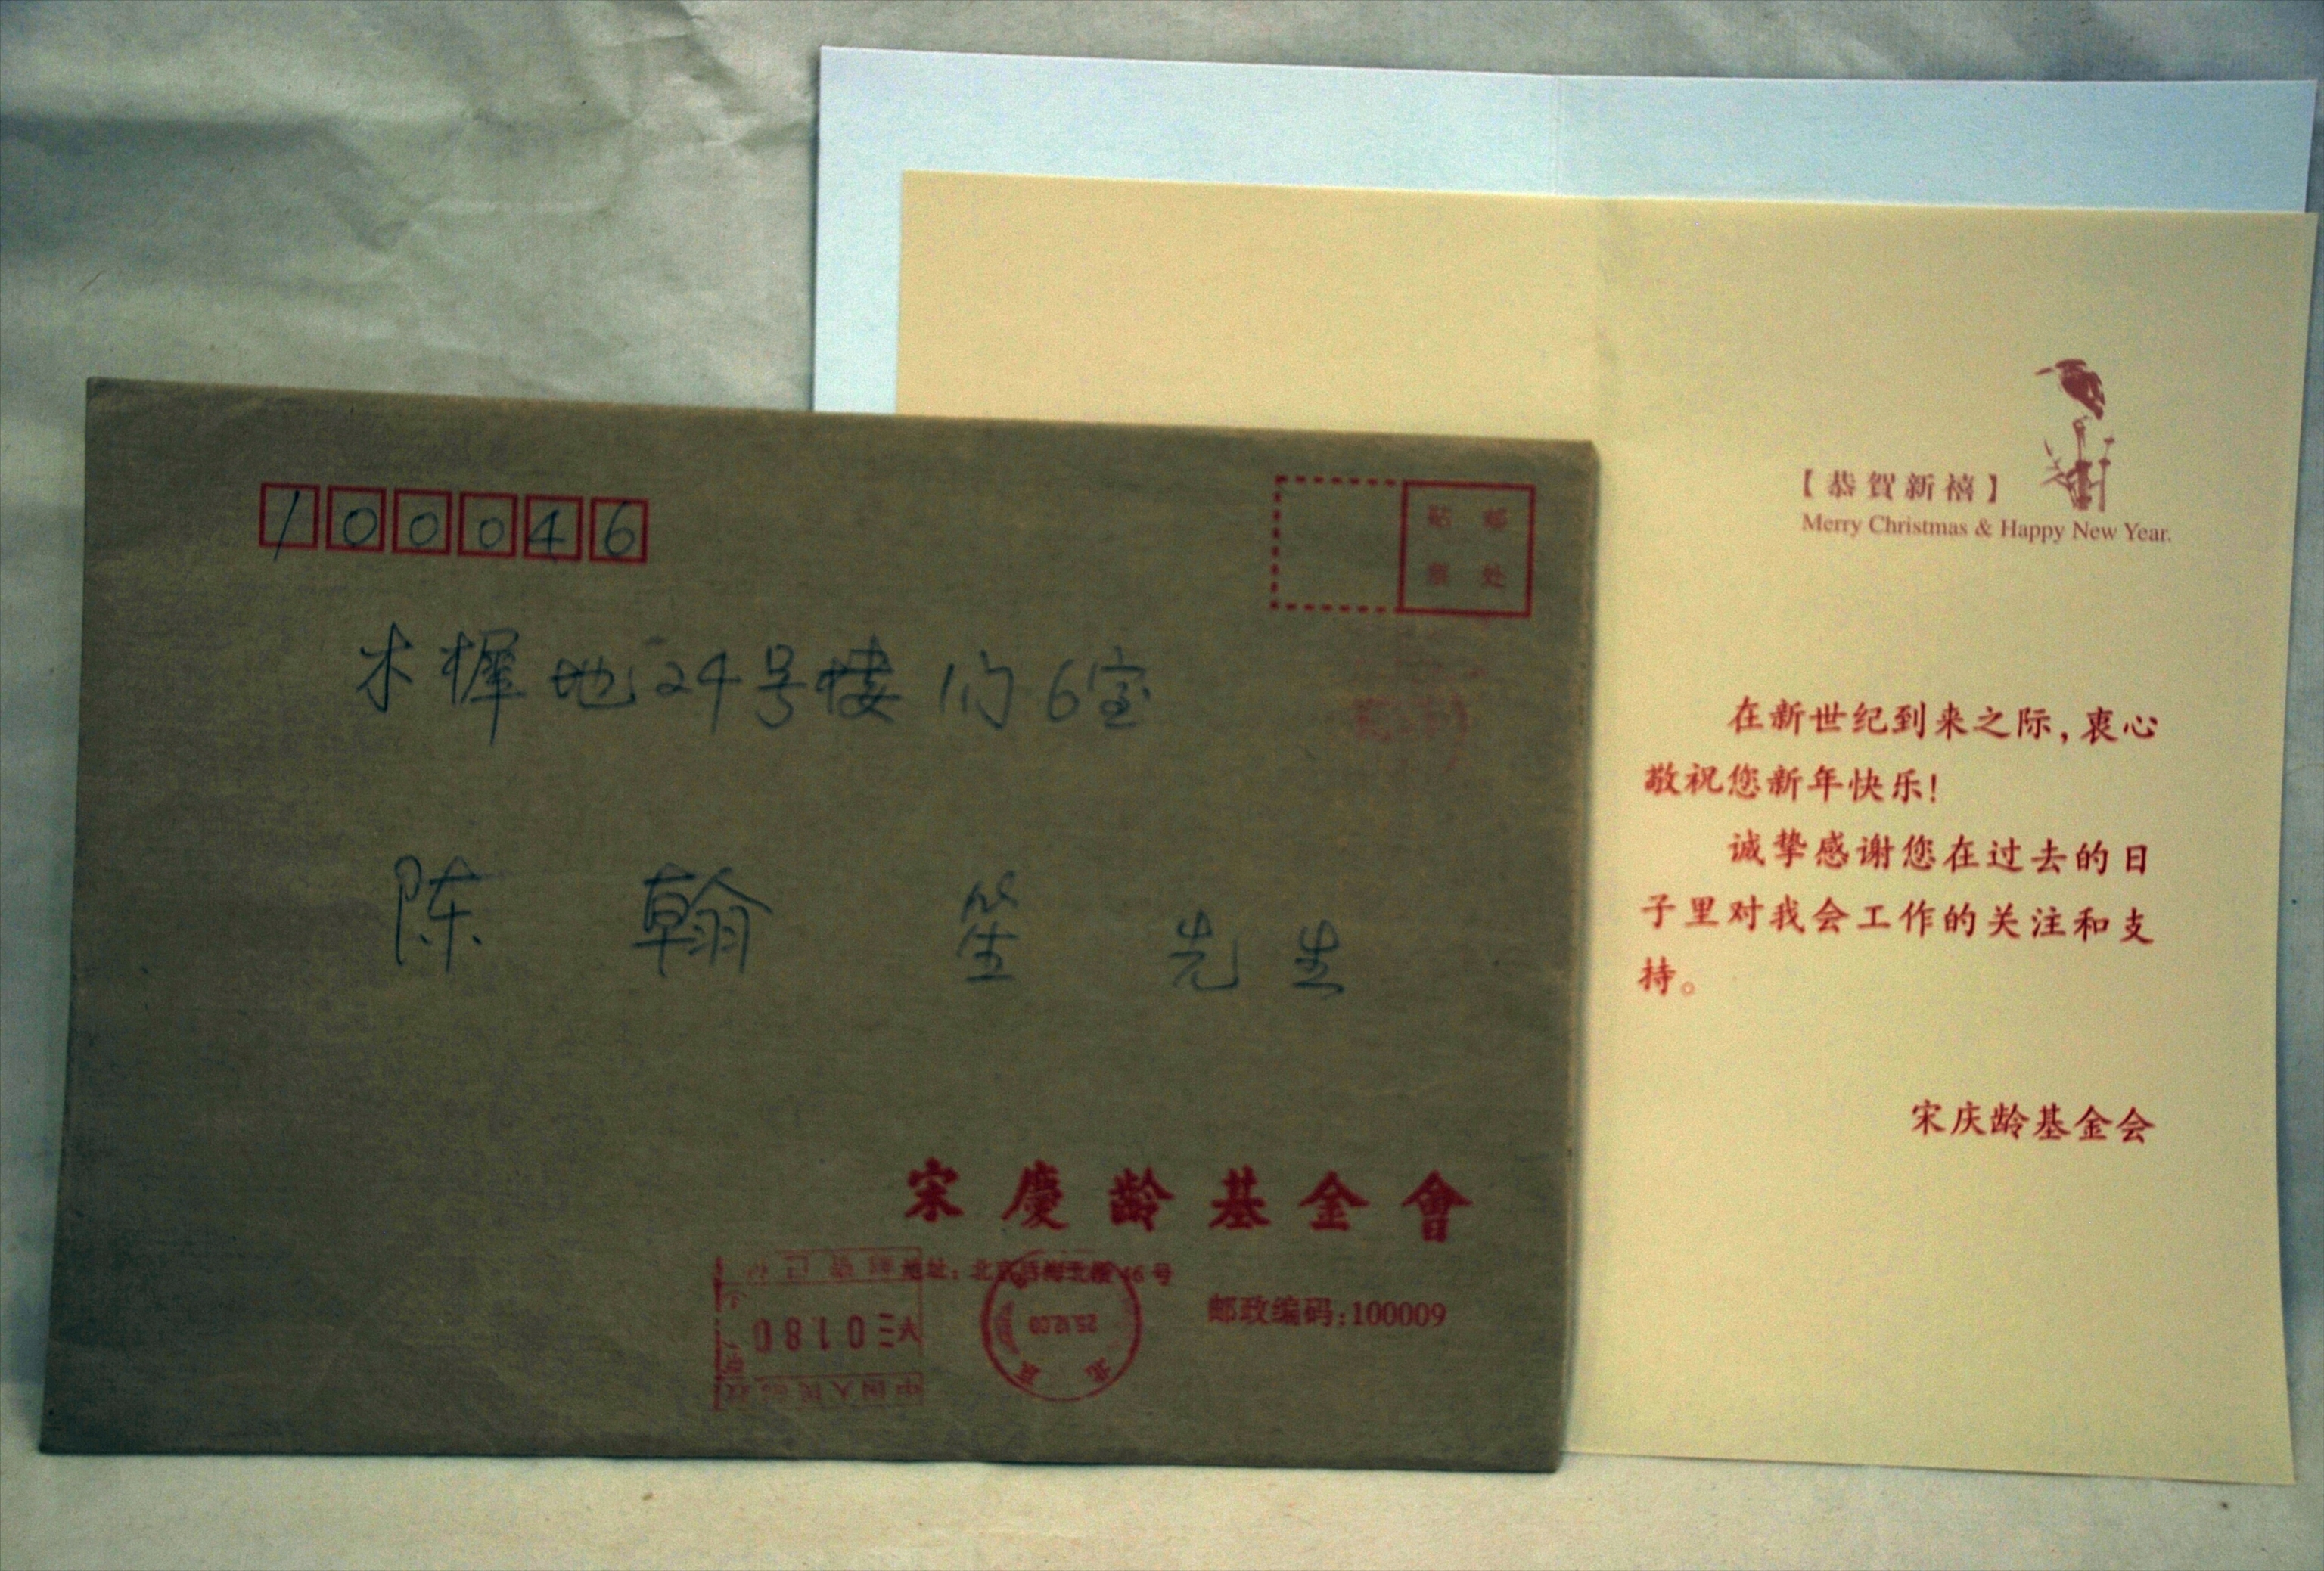 100046
贴邮
票处
木樨地24号楼1门6室
陈翰笙先生
宋慶龄基金會
地址：北京后海北沿46号
邮政编码：100009
0180
北京
【恭賀新禧】
Merry Christmas & Happy New Year.
在新世纪到来之际，衷心
敬祝您新年快乐！
诚挚感谢您在过去的日
子里对我会工作的关注和支
持。
宋庆龄基金会